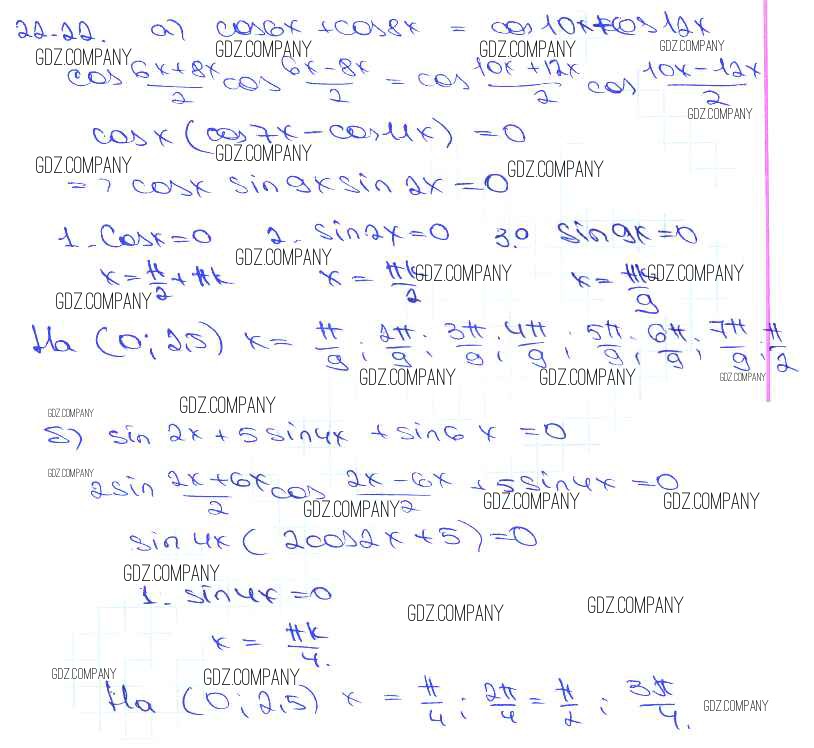 22-22. а) cos6x + cos8x = cos10x+cos12x
GDZ.COMPANY GDZ.COMPANY GDZ.COMPANY GDZ.COMPANY
cos (6x+8x)/2 cos (6x-8x)/2 = cos (10x+12x)/2 cos (10x-12x)/2
GDZ.COMPANY
cosx (cos7x - cos11x) = 0
GDZ.COMPANY GDZ.COMPANY GDZ.COMPANY
=> cosx sin9x sin2x = 0
1. Cosx=0 2. sin2x=0 3. sin9x=0
GDZ.COMPANY
x = π/2 + πk x = πk/2 x = πk/9
GDZ.COMPANY GDZ.COMPANY GDZ.COMPANY
На (0; 2,5) x = π/9; 2π/9; 3π/9; 4π/9; 5π/9; 6π/9; 7π/9; π/2
GDZ.COMPANY GDZ.COMPANY GDZ.COMPANY
GDZ.COMPANY GDZ.COMPANY
б) sin 2x + 5 sin4x + sin6x = 0
GDZ.COMPANY
2sin (2x+6x)/2 cos (2x-6x)/2 + 5sin4x = 0
GDZ.COMPANY GDZ.COMPANY GDZ.COMPANY
sin 4x ( 2cos2x + 5 ) = 0
GDZ.COMPANY
1. sin4x = 0
GDZ.COMPANY GDZ.COMPANY
x = πk/4.
GDZ.COMPANY GDZ.COMPANY
На (0; 2,5) x = π/4; 2π/4 = π/2; 3π/4.
GDZ.COMPANY